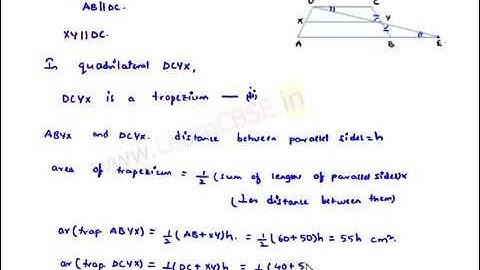 AB||DC.
XY||DC.
D C
X Y
A B E
In quadrilateral DCYX,
DCYX is a trapezium — (ii)
ABYX and DCYX. distance between parallel sides = h
area of trapezium = 1/2 (sum of lengths of parallel sides) x
(⊥or distance between them)
ar(trap ABYX) = 1/2 (AB+XY)h. = 1/2 (60+50)h = 55h cm².
ar(trap DCYX) = 1/2 (DC+XY)h = 1/2 (40+5